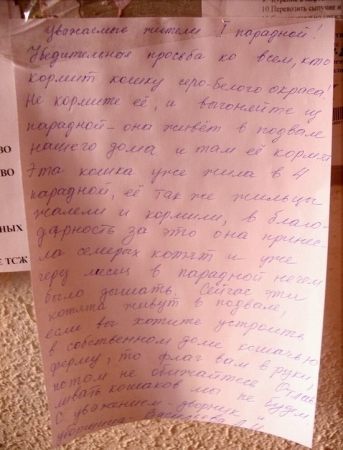 Уважаемые жители 1 парадной!
Убедительная просьба ко всем, кто
кормит кошку серо-белого окраса!
Не кормите её, и выгоняйте из
парадной - она живёт в подвале
нашего дома и там её кормят
Эта кошка уже жила в 4
парадной, её так же жильцы
жалели и кормили, в благо-
дарность за это она принес-
ла семерых котят и уже
через месяц в парадной нечем
было дышать. Сейчас эти
котята живут в подвале,
если вы хотите устроить
в собственном доме кошачью
ферму, то флаг вам в руки,
потом не обижайтесь Отлав-
ливать кошаков мы не будем
С уважением дворник и
уборщица
10.Перевозить
ВО
ВО
НЫХ
Е ТСЖ